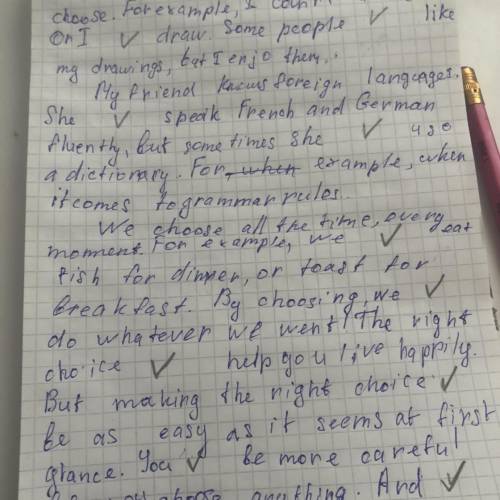 choose. For example, I
Or I ✓ draw. Some people ✓ like
my drawings, but I enjo them.
My friend knows foreign languages.
She ✓ speak French and German
fluently, but sometimes she ✓ use
a dictionary. For, when example, when
it comes to grammar rules.
We choose all the time, every
moment. For example, we ✓ eat
fish for dinner, or toast for
breakfast. By choosing, we ✓
do whatever we went! The right
choice ✓ help you live happily.
But making the right choice ✓
be as easy as it seems at first
glance. You ✓ be more careful
choose anything. And ✓